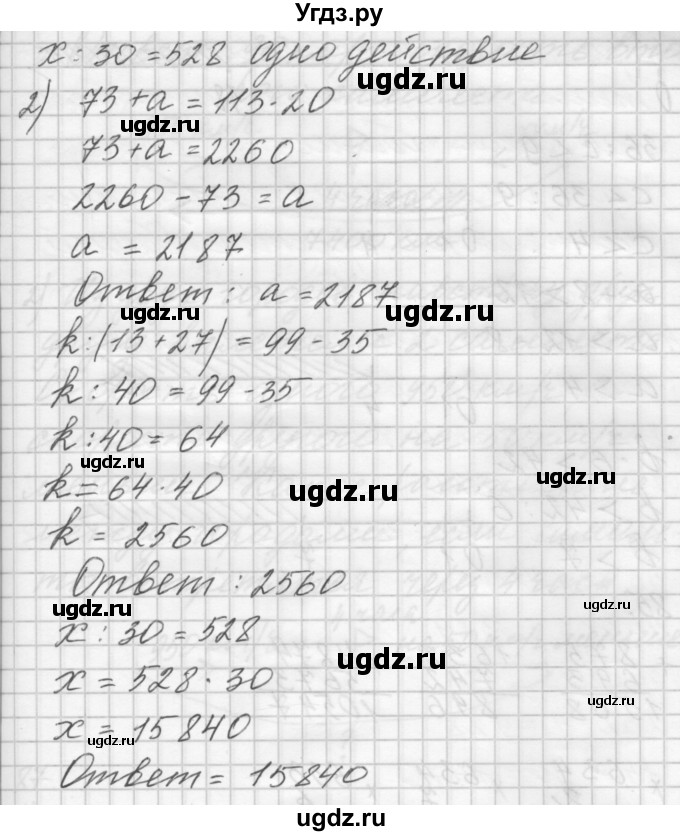 Угдз.ру
x : 30 = 528 одно действие
ugdz.ru
2) 73 + a = 113 · 20
ugdz.ru
73 + a = 2260
2260 - 73 = a
a = 2187
Ответ: a = 2187
ugdz.ru
ugdz.ru
k : (13 + 27) = 99 - 35
k : 40 = 99 - 35
k : 40 = 64
ugdz.ru
ugdz.ru
k = 64 · 40
ugdz.ru
k = 2560
Ответ: 2560
ugdz.ru
ugdz.ru
x : 30 = 528
ugdz.ru
x = 528 · 30
ugdz.ru
x = 15840
ugdz.ru
Ответ = 15840
ugdz.ru